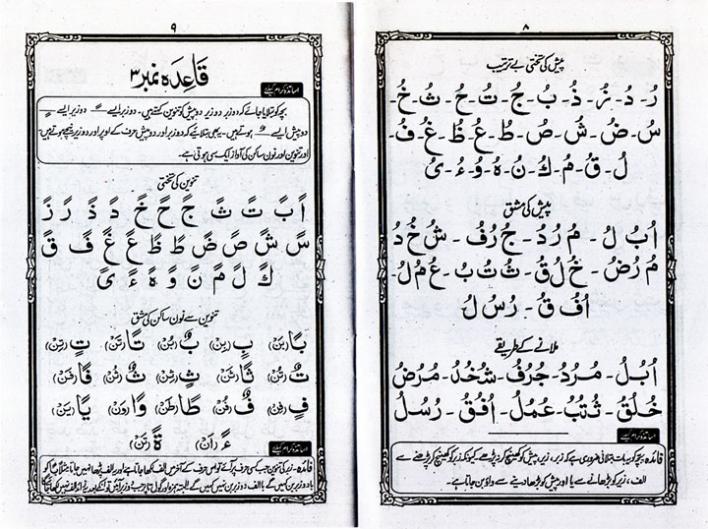 ۸
پیش کی تختی بے ترتیب
رُ - دُ - زُ - ذُ - بُ - جُ - تُ - حُ - ثُ - خُ -
سُ - ضُ - شُ - صُ - طُ - عُ - ظُ - غُ - فُ -
لُ - قُ - مُ - كُ - نُ - هُ - وُ - ءُ - یُ
پیش کی مشق
اُ بُ لُ - مُ رُ دُ - جُ رُ فُ - شُ خُ دُ
مُ رُ ضُ - خُ لُ قُ - ثُ تُ بُ - عُ مُ لُ -
اُ فُ قُ - رُ سُ لُ
ملانے کے طریقے
اُبُلُ - مُرُدُ - جُرُفُ - شُخُدُ - مُرُضُ
خُلُقُ - ثُتُبُ - عُمُلُ - اُفُقُ - رُسُلُ
اساتذہ کرام کیلئے
فائدہ: بچہ کو یہ بات بتلانی ضروری ہے کہ زبر، زیر، پیش کو کھینچ کر نہ پڑھے کیونکہ زبر کو کھینچ کر پڑھنے سے
الف، زیر کو بڑھانے سے یا اور پیش کو بڑھا دینے سے واؤ بن جاتا ہے۔
۹
قَاعِدَہ نمبر ۳
اساتذہ کرام کیلئے
بچہ کو بتلایا جائے کہ دو زبر دو زیر دو پیش کو تنوین کہتے ہیں۔ دو زبر ایسے ـً دو زیر ایسے ـٍ
دو پیش ایسے ـٌ ہوتے ہیں۔ یہ بھی بتلائیے کہ دو زبر اور دو پیش حرف کے اوپر اور دو زیر نیچے ہوتے ہیں
اور تنوین اور نون ساکن کی آواز ایک سی ہوتی ہے۔
تنوین کی تختی
اً بً تً ثً جً حً خً دً ذً رً زً
سً شً صً ضً طً ظً عً غً فً قً
كً لً مً نً وً هً ءً یً
تنوین سے نون ساکن کی مشق
بًا (بَنْ) بٍ (بِنْ) بٌ (بُنْ) تًا (تَنْ) تٍ (تِنْ)
تٌ (تُنْ) ثًا (ثَنْ) ثٍ (ثِنْ) ثٌ (ثُنْ) فًا (فَنْ)
فٍ (فِنْ) فٌ (فُنْ) طًا (طَنْ) وًا (وَنْ) یًا (یَنْ)
ءً (اَنْ) ةً (تَنْ)
اساتذہ کرام کیلئے
فائدہ: زبر کی تنوین جب کسی حرف پر آئے تو اس حرف کے آخر میں الف لکھا جاتا ہے اور یہ الف پڑھا نہیں جاتا